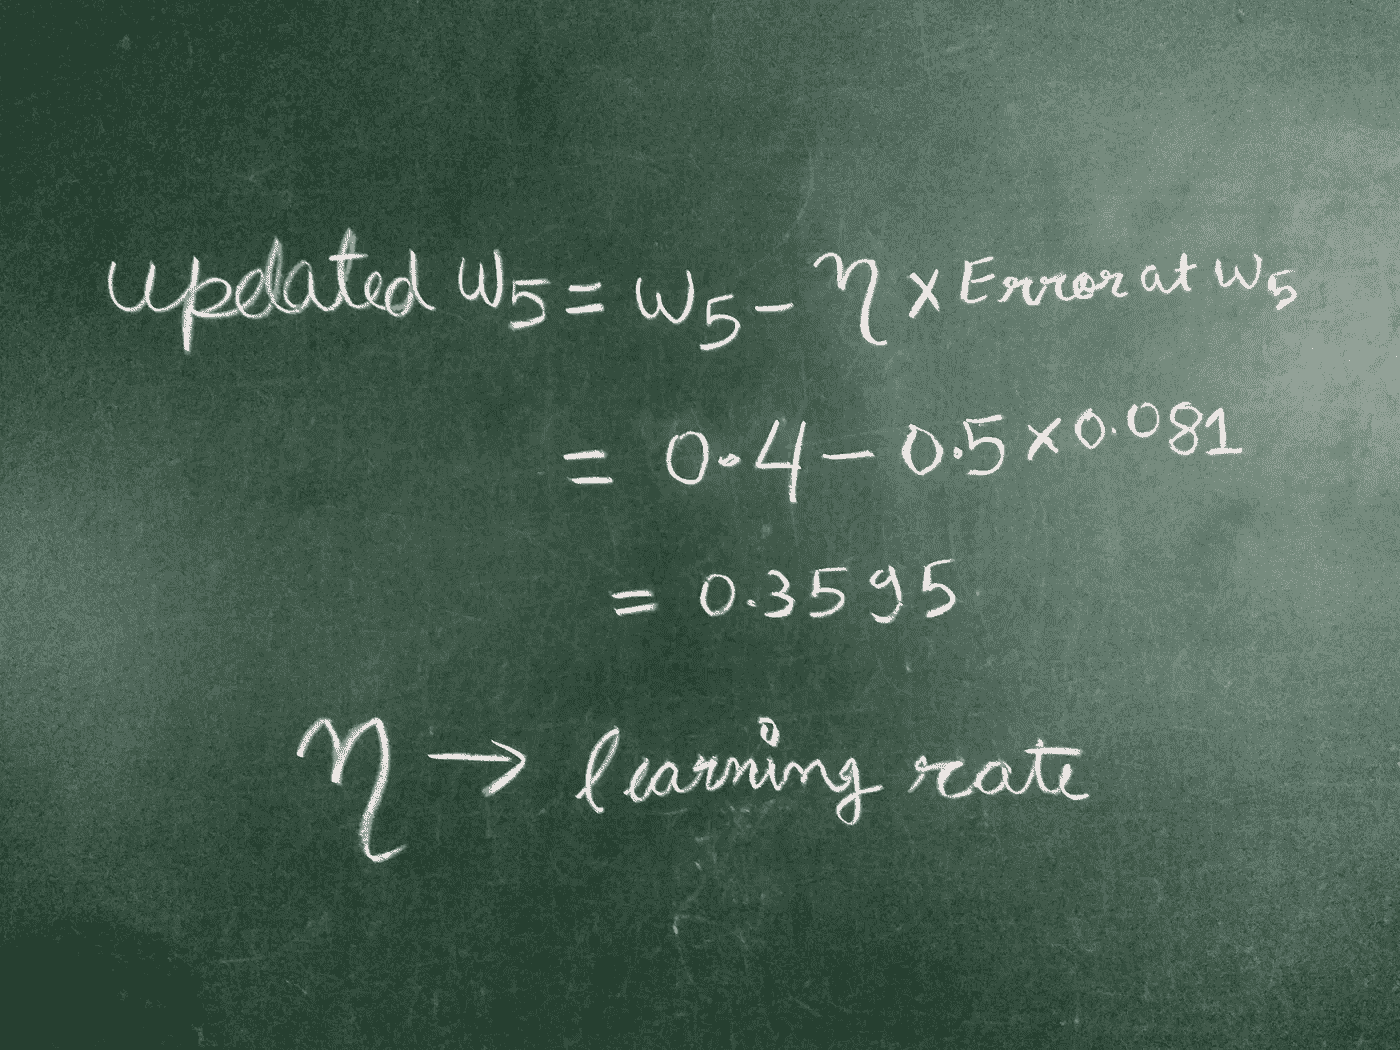 updated w₅ = w₅ - η × Error at w₅
= 0.4 - 0.5 × 0.081
= 0.3595
η → learning rate